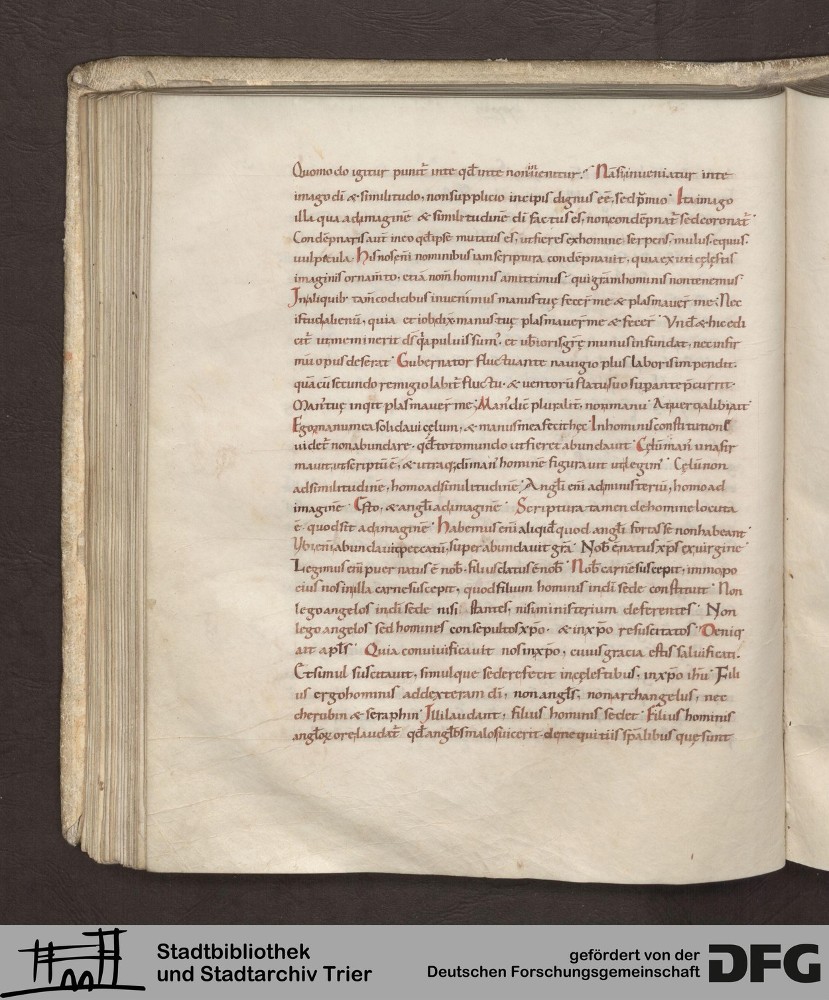 Quomodo igitur punit᷑ inte qđ inte non inuenitur. Nā si inueniatur inte
imago dī & similitudo, non supplicio incipis dignus eē, sed p̄mio. Ita imago
illa qua ad imaginē & similitudinē dī factus es, non condēpnat᷑ sed coronat᷑
Condēpnaris aut̄ in eo qđ ipse mutatus es, ut fieres ex homine serpens. mulus. equus.
uulpecula. His nos eni nominibus iam scriptura condēpnauit, quia exuti cęlestis
imaginis ornam̄to, etiā nom̄ hominis amittimus qui grām hominis non tenemus
In aliquib; tam̄ codicibus inuenimus manus tuę fecer̄ me & plasmauer̄ me. Nec
istud alienū, quia et iob dix̄ manus tuę plasmauer̄ me & fecer̄ Vnđ & hic edi
cit᷑ ut meminerit ds̄ qā puluis sum᷒, et uberioris grę munus infundat, nec infir
mū opus deserat Gubernator fluctuante nauigio plus laboris impendit.
quā cū secundo remigio labit᷑ fluctu. & uentorū flatu suo supante p̄currit.
Man᷒ tuę inqit plasmauer̄ me; Man᷒ dic̄ pluralit̄, non manu At uero alibi ait
Ego manu mea solidaui cęlum, & manus mea fecit hęc In hominis constitutione
uidet᷑ non abundare. qđ toto mundo ut fieret abundauit Cęlū man᷒ una fir
mauit, ut scriptū ē, & utraq; dī man᷒ hominē figurauit ut legim᷒ Cęlū non
ad similitudinē, homo ad similitudinē Angli eni ad ministeriū, homo ad
imaginē Esto, & angli ad imaginē Scriptura tamen de homine locuta
ē. quod sit ad imaginē Habemus eni aliqid quod angli fortasse non habeant
Vbi eni abundauit peccatū, super abundauit grā Nob̄ ē natus xp̄s ex uirgine
Legimus eni puer natus ē nob̄. filius datus ē nob̄ Nob̄ carnē suscepit, immo po
cius nos in illa carne suscepit, quod filium hominis in dī sede constituit Non
lego angelos in dī sede nisi stantes, nisi ministerium deferentes Non
lego angelos sed homines consepultos xp̄o. & in xp̄o resuscitatos Deniq;
ait apl̄s Quia conuiuificauit nos in xp̄o, cuius gracia estis saluificati.
Et simul suscitauit, simulque sedere fecit in cęlestibus, in xp̄o ihū Fili
us ergo hominis ad dexteram dī, non angl̄s, non archangelus, nec
cherubin & seraphin Illi laudant, filius hominis sedet Filius hominis
angl̄oꝝ ore laudat᷑ qđ angl̄os malos uicerit. de nequitiis sp̄alibus quę sunt
Stadtbibliothek
und Stadtarchiv Trier
gefördert von der
Deutschen Forschungsgemeinschaft
DFG